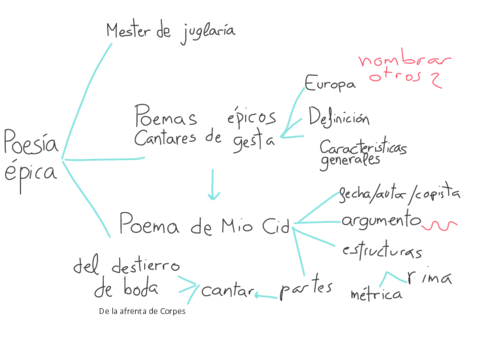 Mester de juglaría
nombrar
otros 2
Europa
Poemas épicos
Cantares de gesta
Definición
Características
generales
Poesía
épica
fecha/autor/copista
argumento
Poema de Mio Cid
estructuras
del destierro
de boda
De la afrenta de Corpes
cantar
partes
métrica
rima